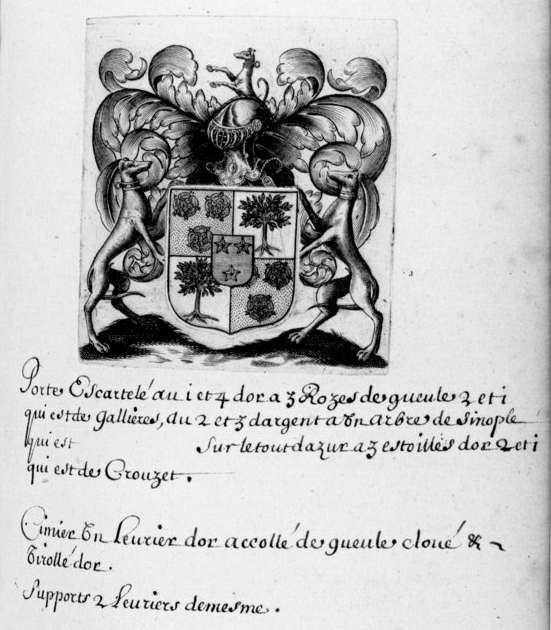 Porte Escartelé au 1 et 4 dor a 3 Rozes de gueule 2 et 1
qui est de Gallières, au 2 et 3 dargent a Un Arbre de Sinople
qui est Sur le tout dazur a 3 estoilles dor 2 et 1
qui est de Crouzet.
Cimier Un Leurier dor accollé de gueule cloué &
Virollé dor.
Supports 2 Leuriers de mesme.